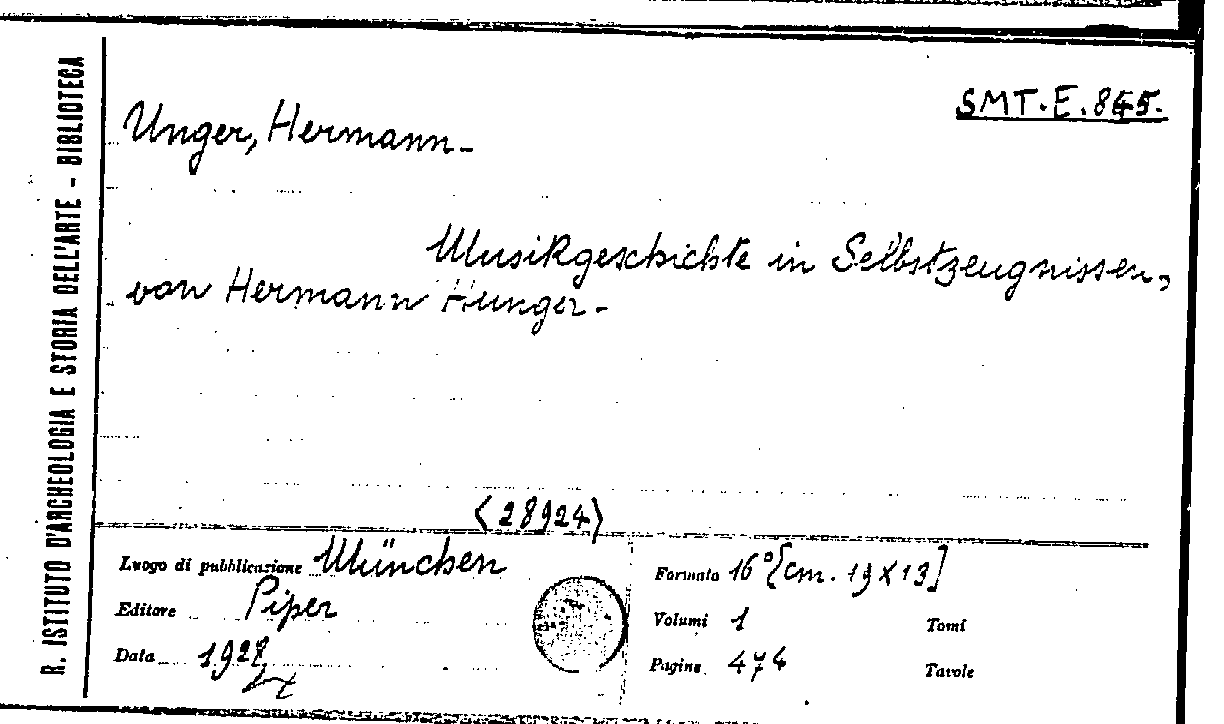 R. ISTITUTO D'ARCHEOLOGIA E STORIA DELL'ARTE - BIBLIOTECA
SMT.E.845.
Unger, Hermann-
Musikgeschichte in Selbstzeugnissen,
von Hermann Hunger-
(28924)
Luogo di pubblicazione München
Editore Piper
Data 1928
Formato 16°[cm. 19X13]
Volumi 1 Tomi
Pagine 474 Tavole